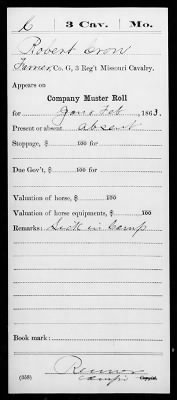 C | 3 Cav. | Mo.
Robert Cron
Farrier, Co. G, 3 Reg't Missouri Cavalry.
Appears on
Company Muster Roll
for Jan & Feb, 1863.
Present or absent Absent
Stoppage, $ 100 for
Due Gov't, $ 100 for
Valuation of horse, $ 100
Valuation of horse equipments, $ 100
Remarks: Sick in Camp
Book mark:
(358) Copyist.